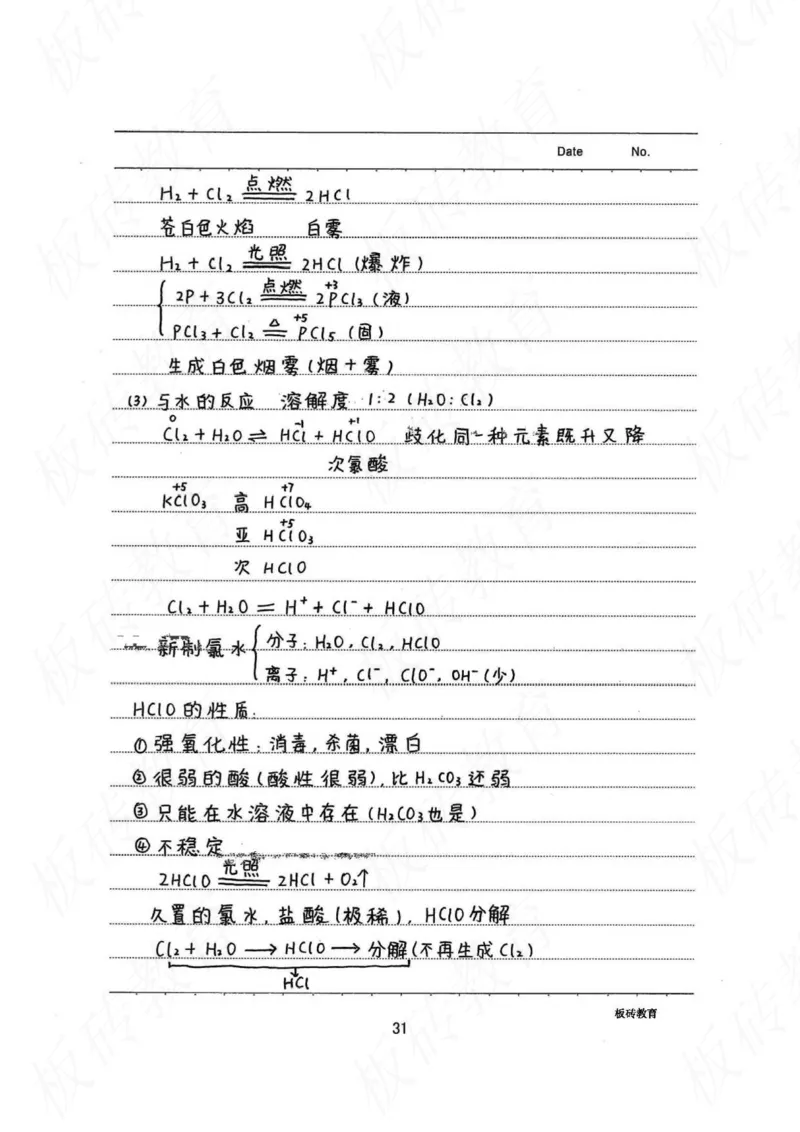 Date No.
H₂ + Cl₂ 点燃═ 2HCl
苍白色火焰 白雾
H₂ + Cl₂ 光照═ 2HCl (爆炸)
2P + 3Cl₂ 点燃═ 2P⁺³Cl₃ (液)
PCl₃ + Cl₂ △═ P⁺⁵Cl₅ (固)
生成白色烟雾 (烟+雾)
(3) 与水的反应 溶解度 1:2 (H₂O: Cl₂)
Cl₂⁰ + H₂O ⇌ HCl⁻¹ + HCl⁺¹O 歧化同一种元素既升又降
次氯酸
KCl⁺⁵O₃ 高 HCl⁺⁷O₄
亚 HCl⁺⁵O₃
次 HClO
Cl₂ + H₂O = H⁺ + Cl⁻ + HClO
新制氯水 { 分子: H₂O, Cl₂, HClO
离子: H⁺, Cl⁻, ClO⁻, OH⁻ (少)
HClO 的性质:
① 强氧化性: 消毒, 杀菌, 漂白
② 很弱的酸 (酸性很弱), 比 H₂CO₃ 还弱
③ 只能在水溶液中存在 (H₂CO₃ 也是)
④ 不稳定
2HClO 光照═ 2HCl + O₂↑
久置的氯水, 盐酸 (极稀), HClO 分解
Cl₂ + H₂O → HClO → 分解 (不再生成 Cl₂)
HCl
板砖教育
31